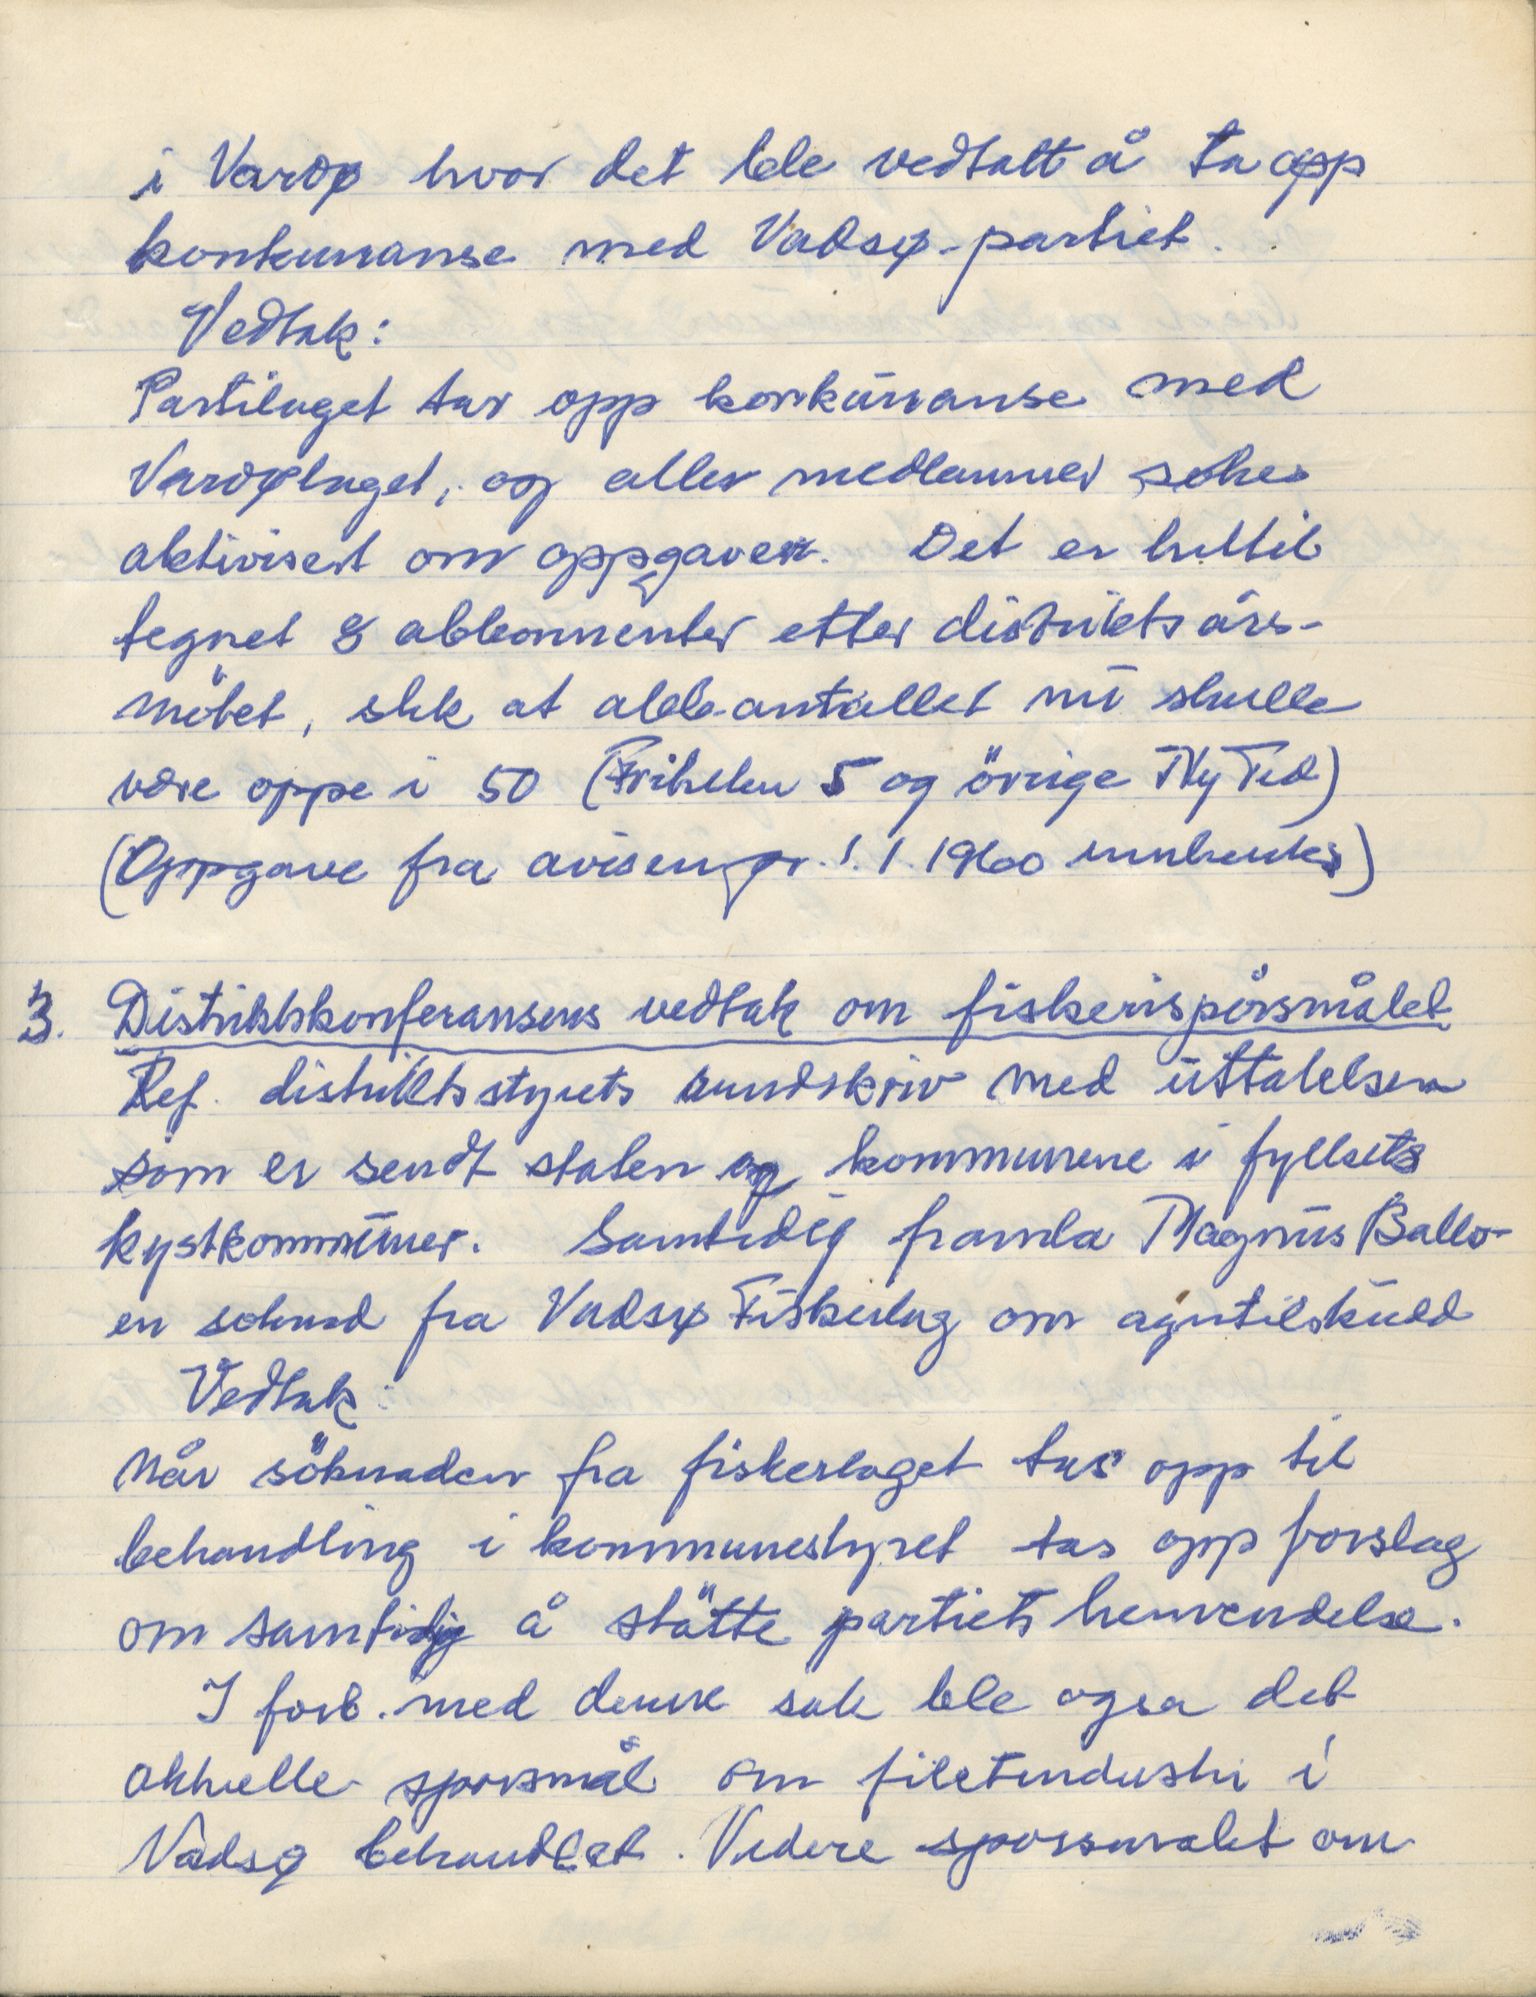 i Vardø hvor det ble vedtatt å ta opp
konkurranse med Vadsø-partiet.
Vedtak:
Partilaget tar opp konkurranse med
Vardølaget, og alle medlemmer søkes
aktivisert om oppgaven. Det er hittil
tegnet 8 abbonnenter etter distriktsårs-
møtet, slik at abb.antallet nu skulle
være oppe i 50 (Friheten 5 og övrige Ny Tid)
(Oppgave fra avisen pr. 1.1.1960 innhentes)
3. Distriktskonferansens vedtak om fiskerispörsmålet
Ref. distriktsstyrets rundskriv med uttalelsen
som er sendt staten og kommunene i fylkets
kystkommuner. Samtidig framla Magnus Ballo
en söknad fra Vadsø Fiskerlag om agntilskudd
Vedtak:
Når söknaden fra fiskerlaget tas opp til
behandling i kommunestyret tas opp forslag
om samtidig å stötte partiets henvendelse.
I forb. med denne sak ble også det
aktuelle sporsmål om filetindustri i
Vadsø behandlet. Videre sporsmalet om